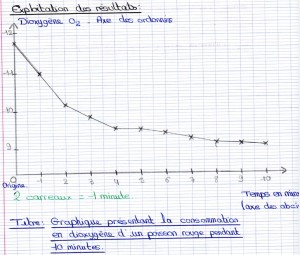 Exploitation des résultats:
Dioxygène O2 - Axe des ordonnées
0 1 2 3 4 5 6 7 8 9 10
Origine
2 carreaux = 1 minute
Temps en
(axe des
Titre: Graphique présentant la consommation
en dioxygène d'un poisson rouge pendant
10 minutes.